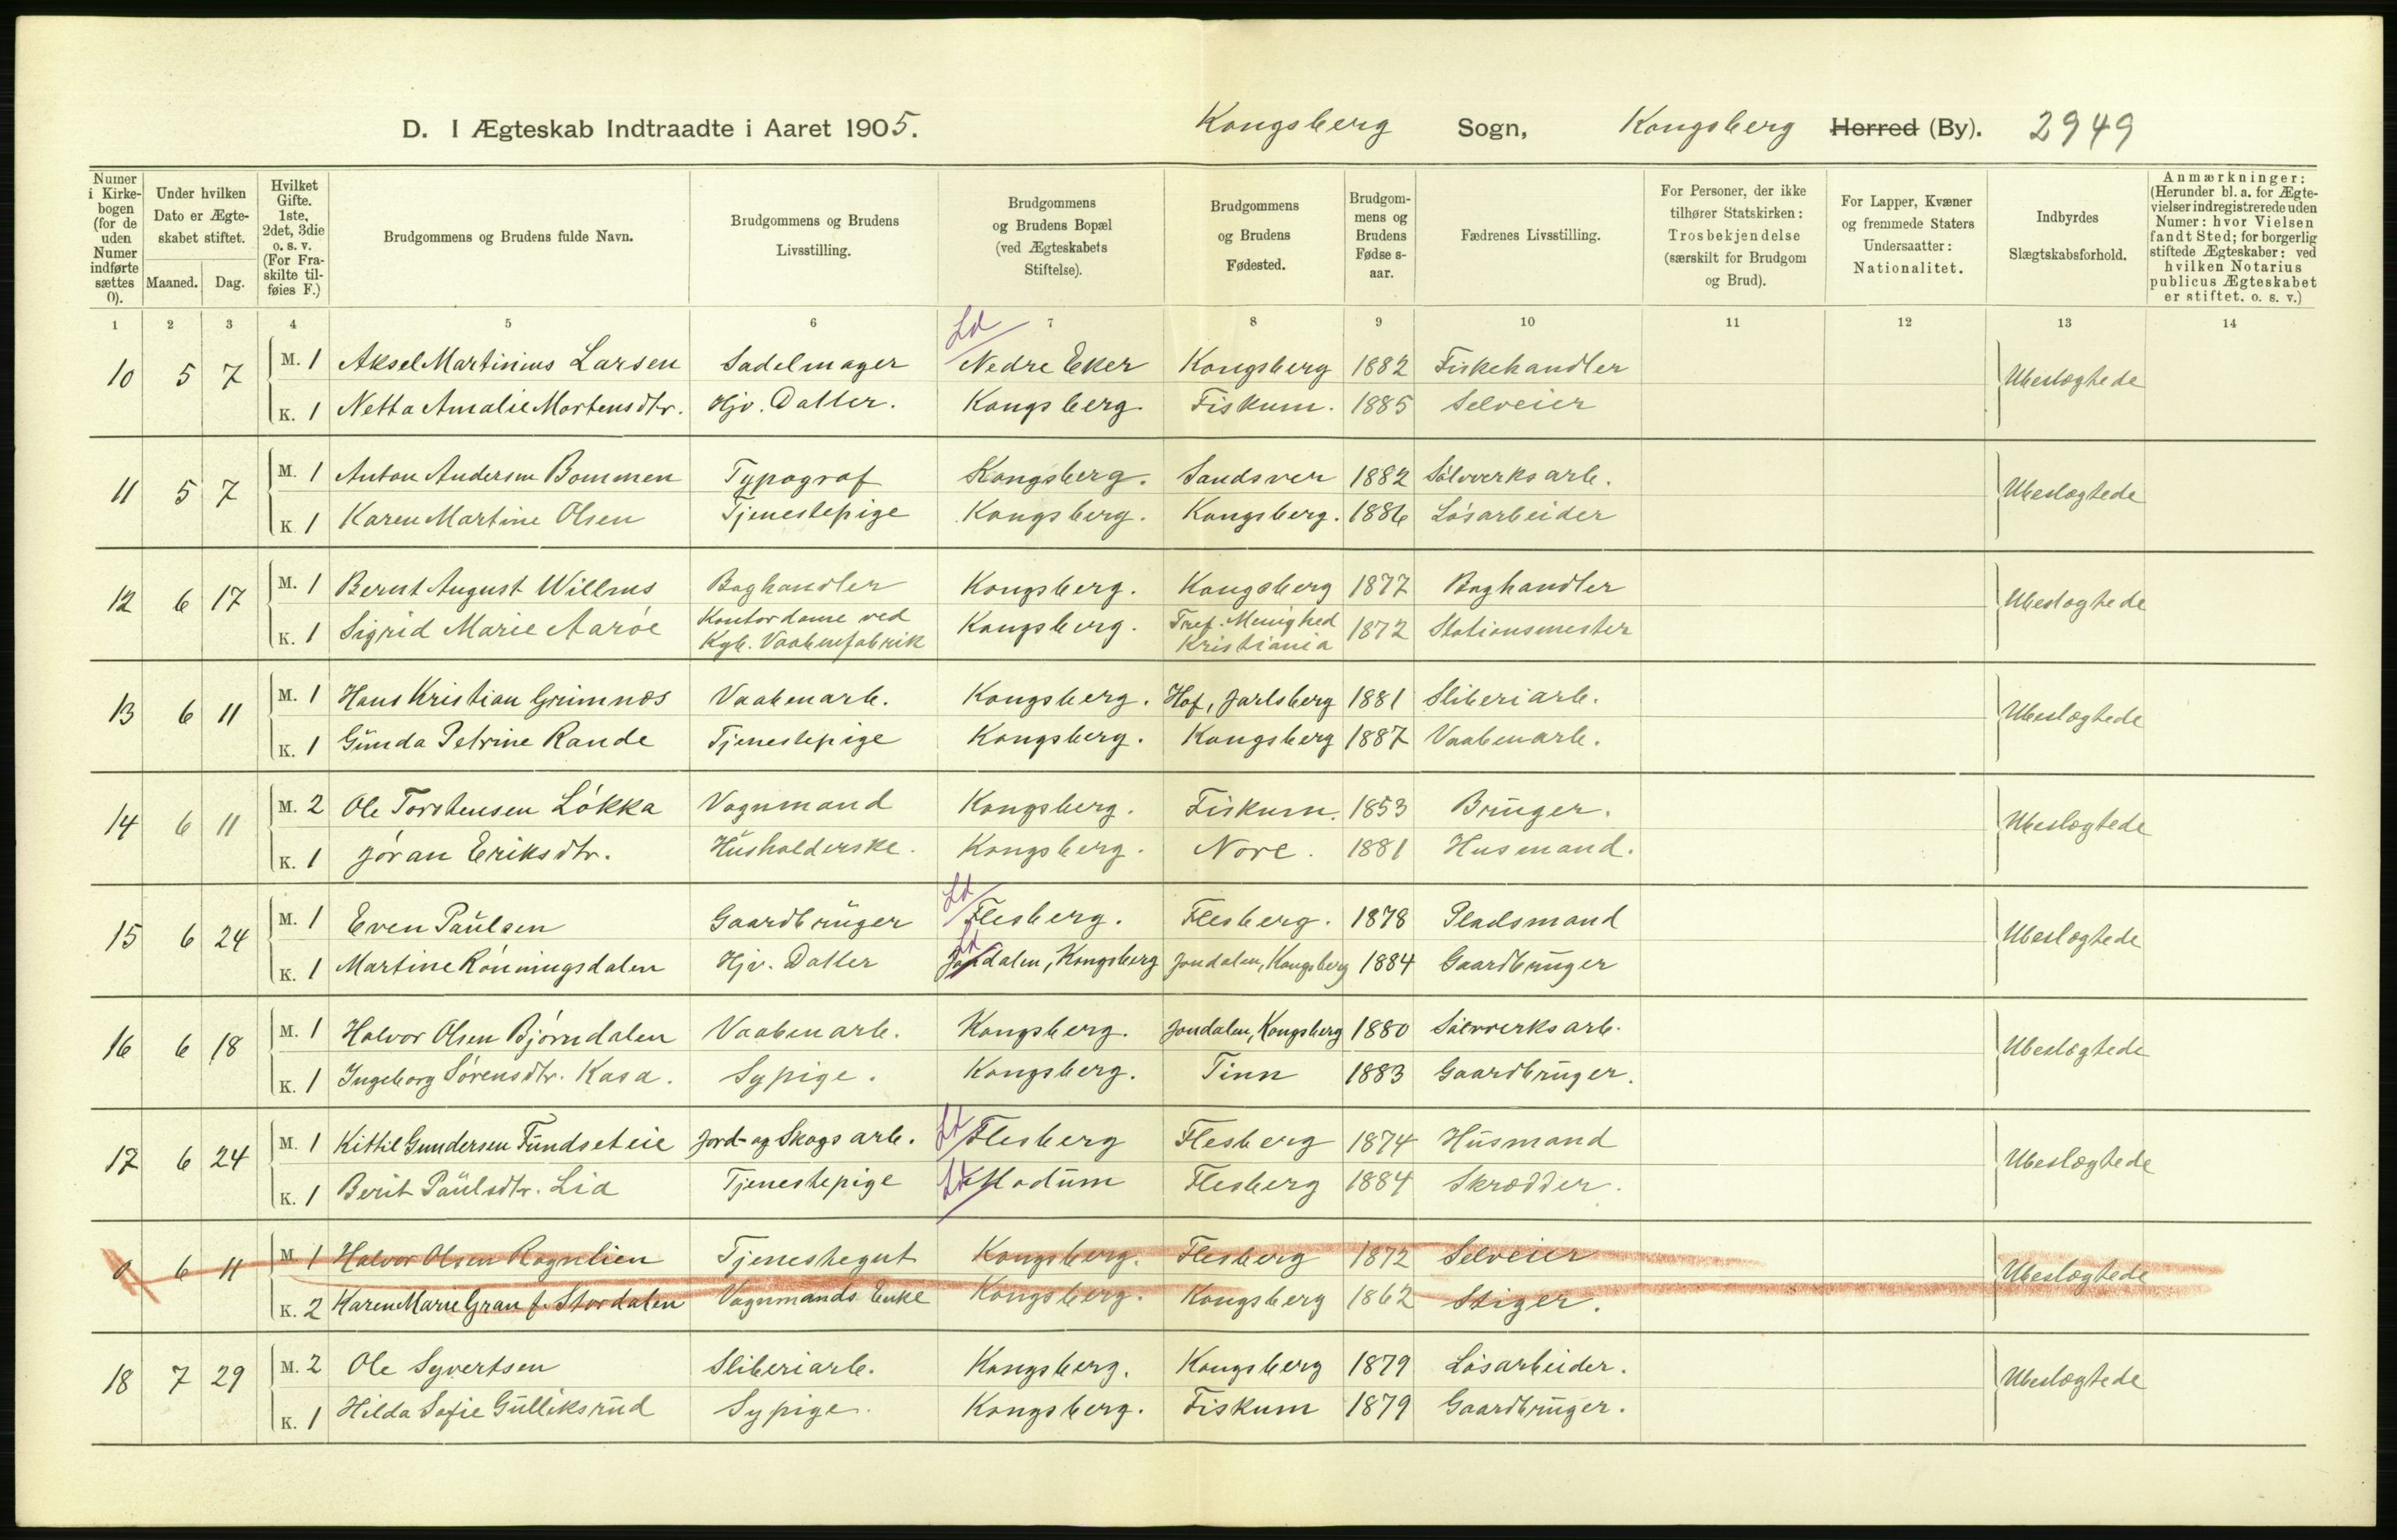 D. I Ægteskab Indtraadte i Aaret 1905. Kongsberg Sogn, Kongsberg Herred (By). 2949
Numer i Kirkebogen (for de uden Numer indførte sættes 0).
Under hvilken Dato er Ægteskabet stiftet.
Maaned. Dag.
Hvilket Gifte. 1ste, 2det, 3die o. s. v. (For Fraskilte tilføies F.)
Brudgommens og Brudens fulde Navn.
Brudgommens og Brudens Livsstilling.
Brudgommens og Brudens Bopæl (ved Ægteskabets Stiftelse).
Brudgommens og Brudens Fødested.
Brudgommens og Brudens Fødselsaar.
Fædrenes Livsstilling.
For Personer, der ikke tilhører Statskirken: Trosbekjendelse (særskilt for Brudgom og Brud).
For Lapper, Kvæner og fremmede Staters Undersaatter: Nationalitet.
Indbyrdes Slægtskabsforhold.
Anmærkninger: (Herunder bl. a. for Ægtevielser indregistrerede uden Numer: hvor Vielsen fandt Sted; for borgerlig stiftede Ægteskaber: ved hvilken Notarius publicus Ægteskabet er stiftet. o. s. v.)
1 2 3 4 5 6 7 8 9 10 11 12 13 14
10 5 7 M. 1 Aksel Martinius Larsen Sadelmager Ld Nedre Eker Kongsberg 1882 Fiskehandler Ubeslægtede
K. 1 Netta Amalie Mortensdtr. Hjv. Datter. Kongsberg. Fiskum. 1885 Selveier
11 5 7 M. 1 Anton Andersen Bommen Typograf Kongsberg. Sandsver 1882 Sölvverksarb. Ubeslægtede
K. 1 Karen Martine Olsen Tjenestepige Kongsberg. Kongsberg. 1886 Lösarbeider
12 6 17 M. 1 Bernt August Willms Boghandler Kongsberg. Kongsberg 1877 Boghandler Ubeslægtede
K. 1 Sigrid Marie Aaröe Kontordame ved Kgb. Vaabenfabrik Kongsberg. Tref. Menighed Kristiania 1872 Stationsmester
13 6 11 M. 1 Hans Kristian Grimnæs Vaabenarb. Kongsberg. Hof, Jarlsberg 1881 Sliberiarb. Ubeslægtede
K. 1 Gunda Petrine Rande Tjenestepige Kongsberg. Kongsberg 1887 Vaabenarb.
14 6 11 M. 2 Ole Torstensen Lökka Vognmand Kongsberg. Fiskum. 1853 Bruger. Ubeslægtede
K. 1 Jöran Eriksdtr. Husholderske. Kongsberg. Nore. 1881 Husmand.
15 6 24 M. 1 Even Paulsen Gaardbruger Ld Flesberg. Flesberg. 1878 Pladsmand Ubeslægtede
K. 1 Martine Rönningsdalen Hjv. Datter Ld Jondalen, Kongsberg Jondalen, Kongsberg 1884 Gaardbruger
16 6 18 M. 1 Halvor Olsen Björndalen Vaabenarb. Kongsberg. Jondalen, Kongsberg 1880 Sölvverksarb. Ubeslægtede
K. 1 Ingeborg Sörensdtr. Kasa. Sypige. Kongsberg. Tinn 1883 Gaardbruger.
17 6 24 M. 1 Kittil Gundersen Fundseteie Jord- og Skogsarb. Ld Flesberg Flesberg 1874 Husmand Ubeslægtede
K. 1 Berit Paulsdtr. Lia Tjenestepige Ld Modum Flesberg 1884 Skrædder.
0 6 11 M. 1 Halvor Olsen Rognlien Tjenestegut Kongsberg. Flesberg 1872 Selveier Ubeslægtede
K. 2 Karen Marie Gran f. Stordalen Vognmands Enke Kongsberg. Kongsberg 1862 Stiger.
18 7 29 M. 2 Ole Syvertsen Sliberiarb. Kongsberg. Kongsberg 1879 Lösarbeider. Ubeslægtede
K. 1 Hilda Sofie Gulliksrud Sypige. Kongsberg. Fiskum 1879 Gaardbruger.